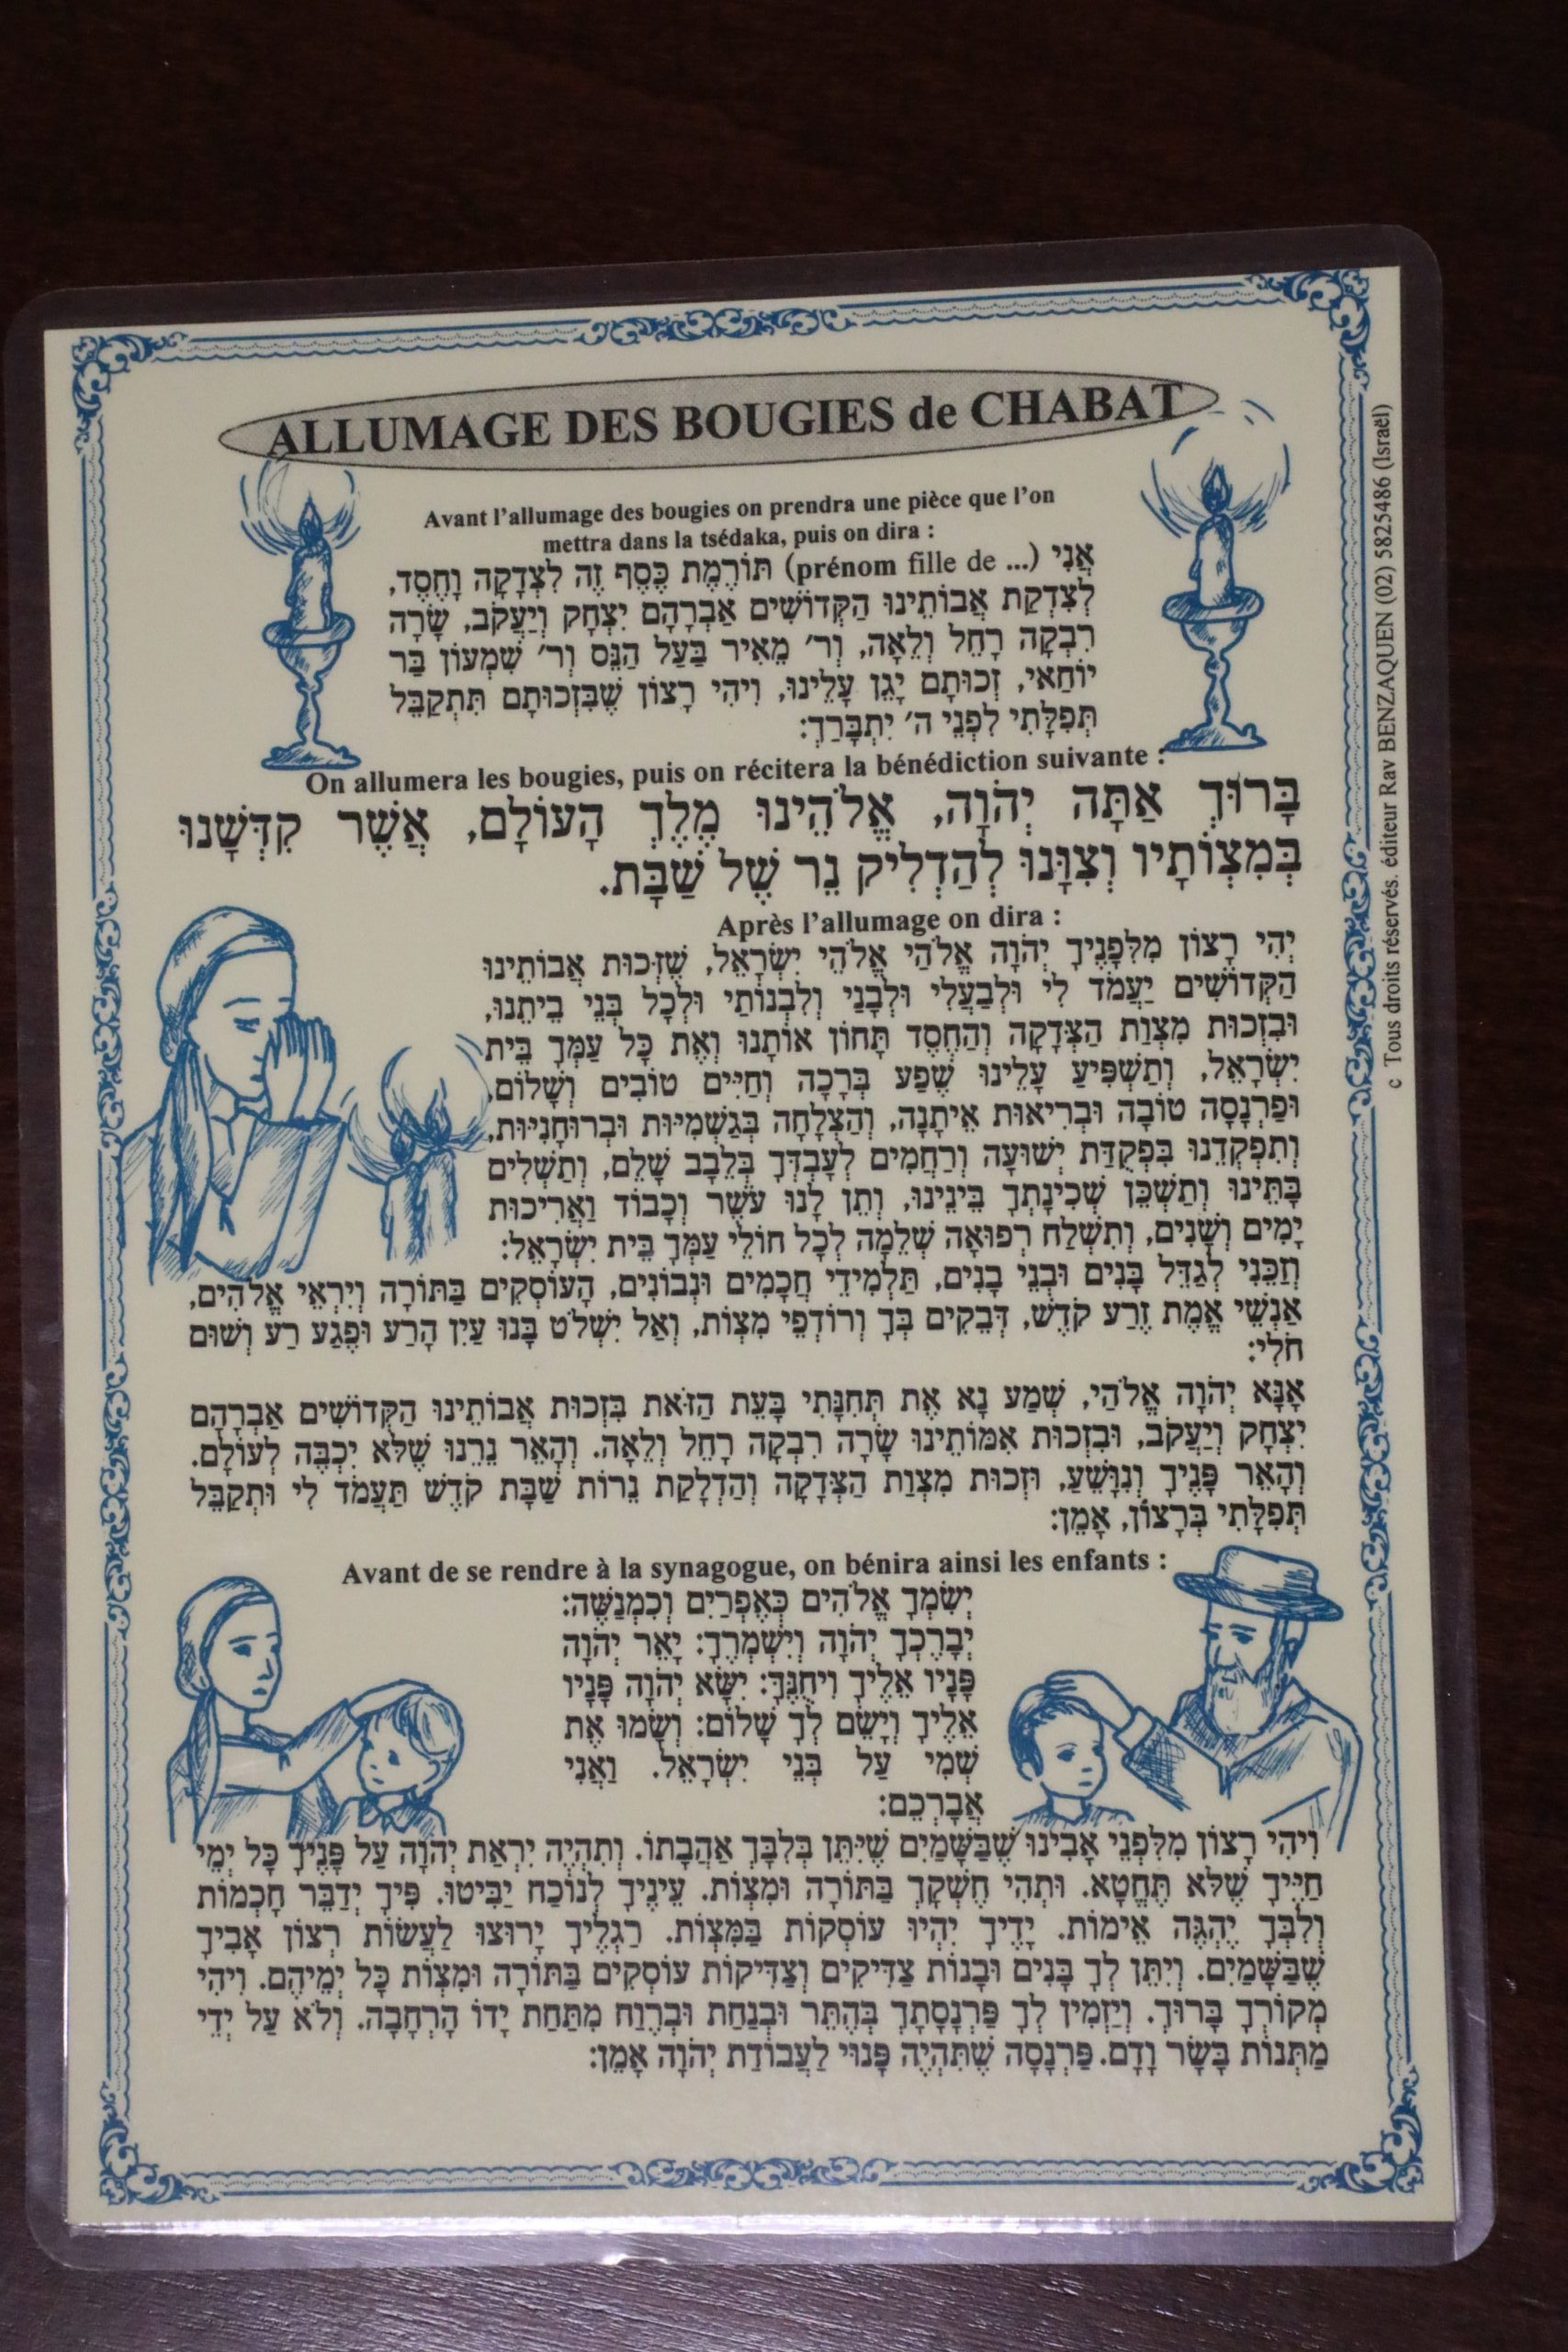 ALLUMAGE DES BOUGIES de CHABAT
Avant l'allumage des bougies on prendra une pièce que l'on
mettra dans la tsédaka, puis on dira :
אֲנִי (prénom fille de ...) תּוֹרֶמֶת כֶּסֶף זֶה לִצְדָקָה וָחֶסֶד,
לְצִדְקַת אֲבוֹתֵינוּ הַקְּדוֹשִׁים אַבְרָהָם יִצְחָק וְיַעֲקֹב, שָׂרָה
רִבְקָה רָחֵל וְלֵאָה, וְר׳ מֵאִיר בַּעַל הַנֵּס וְר׳ שִׁמְעוֹן בַּר
יוֹחַאי, זְכוּתָם יָגֵן עָלֵינוּ, וִיהִי רָצוֹן שֶׁבִּזְכוּתָם תִּתְקַבֵּל
תְּפִלָּתִי לִפְנֵי ה׳ יִתְבָּרַךְ:
On allumera les bougies, puis on récitera la bénédiction suivante :
בָּרוּךְ אַתָּה יְהֹוָה, אֱלֹהֵינוּ מֶלֶךְ הָעוֹלָם, אֲשֶׁר קִדְּשָׁנוּ
בְּמִצְוֹתָיו וְצִוָּנוּ לְהַדְלִיק נֵר שֶׁל שַׁבָּת.
Après l'allumage on dira :
יְהִי רָצוֹן מִלְּפָנֶיךָ יְהֹוָה אֱלֹהַי אֱלֹהֵי יִשְׂרָאֵל, שֶׁזְּכוּת אֲבוֹתֵינוּ
הַקְּדוֹשִׁים יַעֲמֹד לִי וּלְבַעְלִי וּלְבָנַי וְלִבְנוֹתַי וּלְכָל בְּנֵי בֵיתֵנוּ,
וּבִזְכוּת מִצְוַת הַצְּדָקָה וְהַחֶסֶד תָּחוֹן אוֹתָנוּ וְאֶת כָּל עַמְּךָ בֵּית
יִשְׂרָאֵל, וְתַשְׁפִּיעַ עָלֵינוּ שֶׁפַע בְּרָכָה וְחַיִּים טוֹבִים וְשָׁלוֹם,
וּפַרְנָסָה טוֹבָה וּבְרִיאוּת אֵיתָנָה, וְהַצְלָחָה בְּגַשְׁמִיּוּת וּבְרוּחָנִיּוּת,
וְתִפְקְדֵנוּ בִּפְקֻדַּת יְשׁוּעָה וְרַחֲמִים לְעָבְדְּךָ בְּלֵבָב שָׁלֵם, וְתַשְׁלִים
בָּתֵּינוּ וְתַשְׁכֵּן שְׁכִינָתְךָ בֵּינֵינוּ, וְתֵן לָנוּ עֹשֶׁר וְכָבוֹד וַאֲרִיכוּת
יָמִים וְשָׁנִים, וְתִשְׁלַח רְפוּאָה שְׁלֵמָה לְכָל חוֹלֵי עַמְּךָ בֵּית יִשְׂרָאֵל:
וְזַכֵּנִי לְגַדֵּל בָּנִים וּבְנֵי בָנִים, תַּלְמִידֵי חֲכָמִים וּנְבוֹנִים, הָעוֹסְקִים בַּתּוֹרָה וְיִרְאֵי אֱלֹהִים,
אַנְשֵׁי אֱמֶת זֶרַע קֹדֶשׁ, דְּבֵקִים בְּךָ וְרוֹדְפֵי מִצְוֹת, וְאַל יִשְׁלֹט בָּנוּ עַיִן הָרַע וּפֶגַע רַע וְשׁוּם
חֹלִי:
אָנָּא יְהֹוָה אֱלֹהַי, שְׁמַע נָא אֶת תְּחִנָּתִי בָּעֵת הַזֹּאת בִּזְכוּת אֲבוֹתֵינוּ הַקְּדוֹשִׁים אַבְרָהָם
יִצְחָק וְיַעֲקֹב, וּבִזְכוּת אִמּוֹתֵינוּ שָׂרָה רִבְקָה רָחֵל וְלֵאָה. וְהָאֵר נֵרֵנוּ שֶׁלֹּא יִכְבֶּה לְעוֹלָם.
וְהָאֵר פָּנֶיךָ וְנִוָּשֵׁעַ, וּזְכוּת מִצְוַת הַצְּדָקָה וְהַדְלָקַת נֵרוֹת שַׁבָּת קֹדֶשׁ תַּעֲמֹד לִי וּתְקַבֵּל
תְּפִלָּתִי בְּרָצוֹן, אָמֵן:
Avant de se rendre à la synagogue, on bénira ainsi les enfants :
יְשִׂמְךָ אֱלֹהִים כְּאֶפְרַיִם וְכִמְנַשֶּׁה:
יְבָרֶכְךָ יְהֹוָה וְיִשְׁמְרֶךָ: יָאֵר יְהֹוָה
פָּנָיו אֵלֶיךָ וִיחֻנֶּךָּ: יִשָּׂא יְהֹוָה פָּנָיו
אֵלֶיךָ וְיָשֵׂם לְךָ שָׁלוֹם: וְשָׂמוּ אֶת
שְׁמִי עַל בְּנֵי יִשְׂרָאֵל. וַאֲנִי
אֲבָרְכֵם:
וִיהִי רָצוֹן מִלִּפְנֵי אָבִינוּ שֶׁבַּשָּׁמַיִם שֶׁיִּתֵּן בְּלִבְּךָ אַהֲבָתוֹ. וְתִהְיֶה יִרְאַת יְהֹוָה עַל פָּנֶיךָ כָּל יְמֵי
חַיֶּיךָ שֶׁלֹּא תֶּחֱטָא. וּתְהִי חֶשְׁקְךָ בַּתּוֹרָה וּמִצְוֹת. עֵינֶיךָ לְנוֹכַח יַבִּיטוּ. פִּיךָ יְדַבֵּר חָכְמוֹת
וְלִבְּךָ יֶהְגֶּה אֵימוֹת. יָדֶיךָ יִהְיוּ עוֹסְקוֹת בַּמִּצְוֹת. רַגְלֶיךָ יָרוּצוּ לַעֲשׂוֹת רְצוֹן אָבִיךָ
שֶׁבַּשָּׁמַיִם. וְיִתֵּן לְךָ בָּנִים וּבָנוֹת צַדִּיקִים וְצַדִּיקוֹת עוֹסְקִים בַּתּוֹרָה וּמִצְוֹת כָּל יְמֵיהֶם. וִיהִי
מְקוֹרְךָ בָּרוּךְ. וְיַזְמִין לְךָ פַּרְנָסָתְךָ בְּהֶתֵּר וּבְנַחַת וּבְרֶוַח מִתַּחַת יָדוֹ הָרְחָבָה. וְלֹא עַל יְדֵי
מַתְּנוֹת בָּשָׂר וָדָם. פַּרְנָסָה שֶׁתִּהְיֶה פָּנוּי לַעֲבוֹדַת יְהֹוָה אָמֵן:
c Tous droits réservés. éditeur Rav BENZAQUEN (02) 5825486 (Israël)